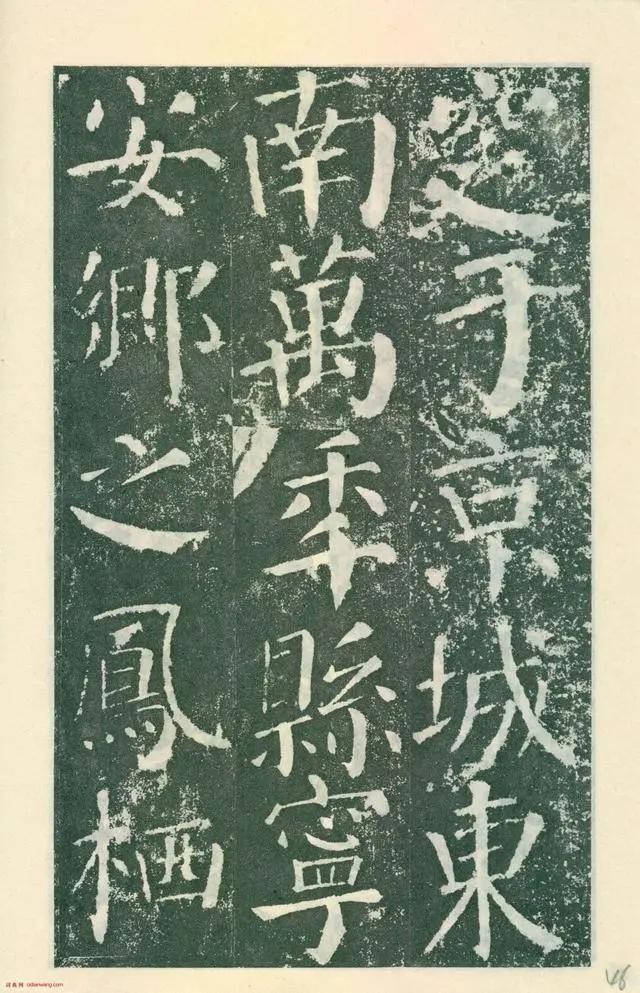 窆于京城東
南萬秊縣寧
安鄉之鳳栖
46
词典网 cidianwang.com